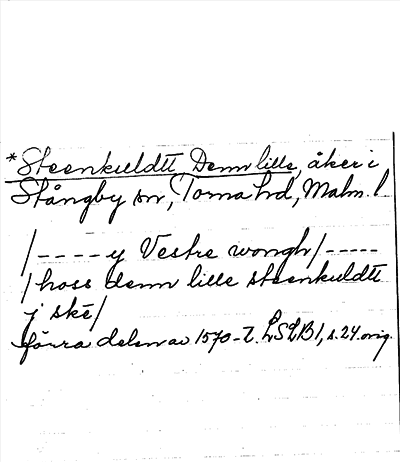 *Steenkuldtt, Denn lille, åker i
Stångby sn, Torna hd, Malm. l
/----y Vestre wongh/-----
/hoss denn lille steenkuldtt
j ske/
förra delen av 1570-t. LSLB1, s. 24 orig.